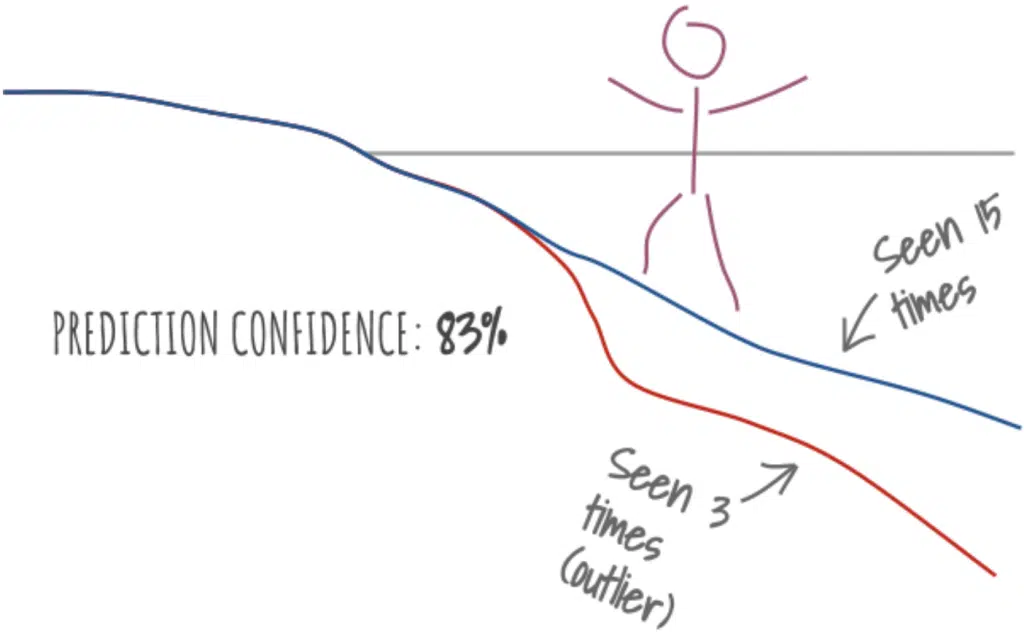 Seen 15
times
PREDICTION CONFIDENCE: 83%
Seen 3
times
(outlier)